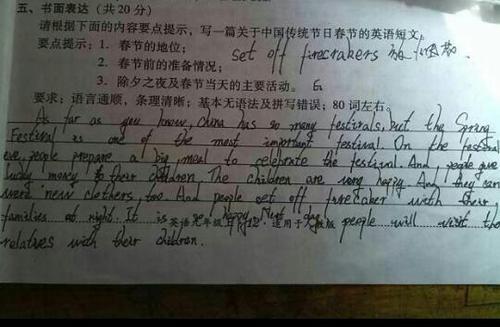 五、书面表达（共20分）
请根据下面的内容要点提示，写一篇关于中国传统节日春节的英语短文。
要点提示：1. 春节的地位；
set off firecrakers
2. 春节前的准备情况；
3. 除夕之夜及春节当天的主要活动。
要求：语言通顺，条理清晰；基本无语法及拼写错误；80词左右。
As far as you know, China has so many festivals, but the Spring
Festival is one of the most important festival. On the festival
eve, people prepare a big meal to celebrate the festival. And people give
lucky money to their children. The children are very happy. And they can
were new clothers, too. And people set off firecraker with their
families at night. It is happy day! people will visit the
英语九年级 12·适用于
relatives with their children.